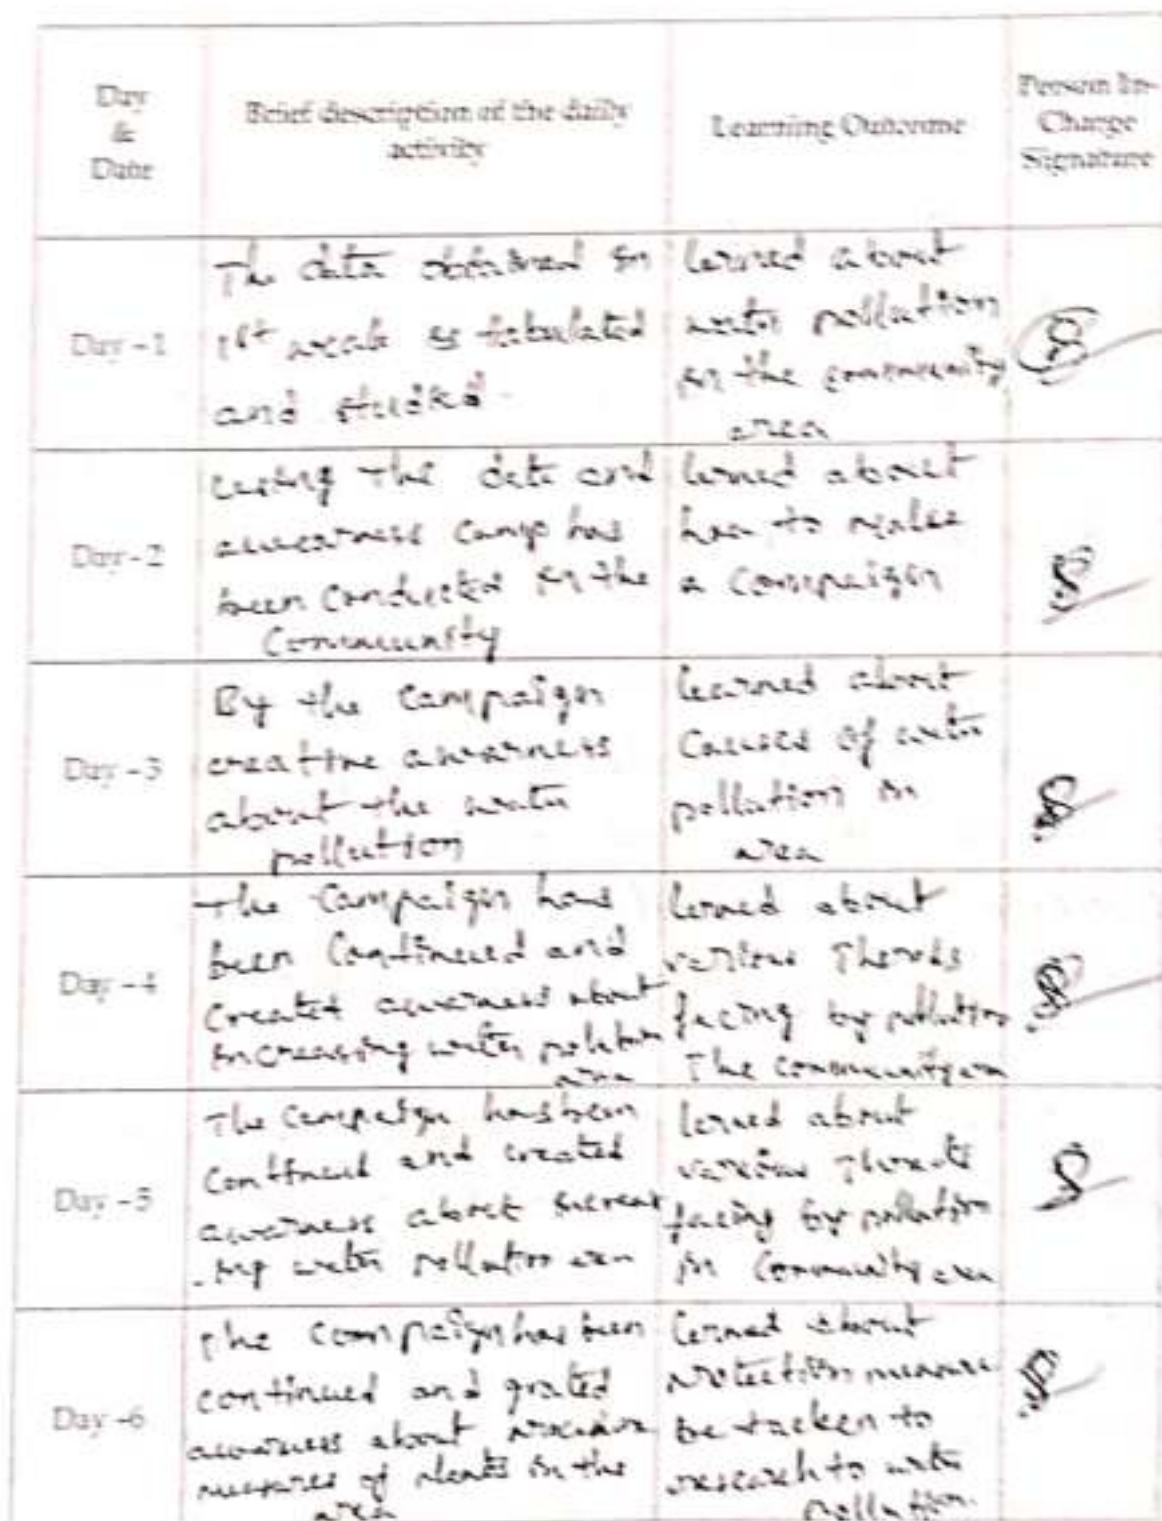 Day
&
Date
Brief description of the daily
activity
Learning Outcome
Person In-
Charge
Signature
Day - 1
The data obtained in
1st week is tabulated
and studied.
lerned about
water pollution
in the community
area
Day - 2
using the data and
awearness camp has
been conducted in the
Community
lerned about
how to make
a compaign
Day - 3
By the campaign
creative awarness
about the water
pollution
learned about
Causes of water
pollution in
area
Day - 4
The Campaign has
been Continued and
Created awarness about
increasing water
area
lerned about
various
facing by pollution
The community
Day - 5
The Campaign has been
continued and created
awarness about increas
-ing water pollution
lerned about
various
facing by pollution
in Community area
Day - 6
The compaign has been
continued and grated
awarness about
measures of plants in the
area
lerned about
be tacken to
research to water
pollution.